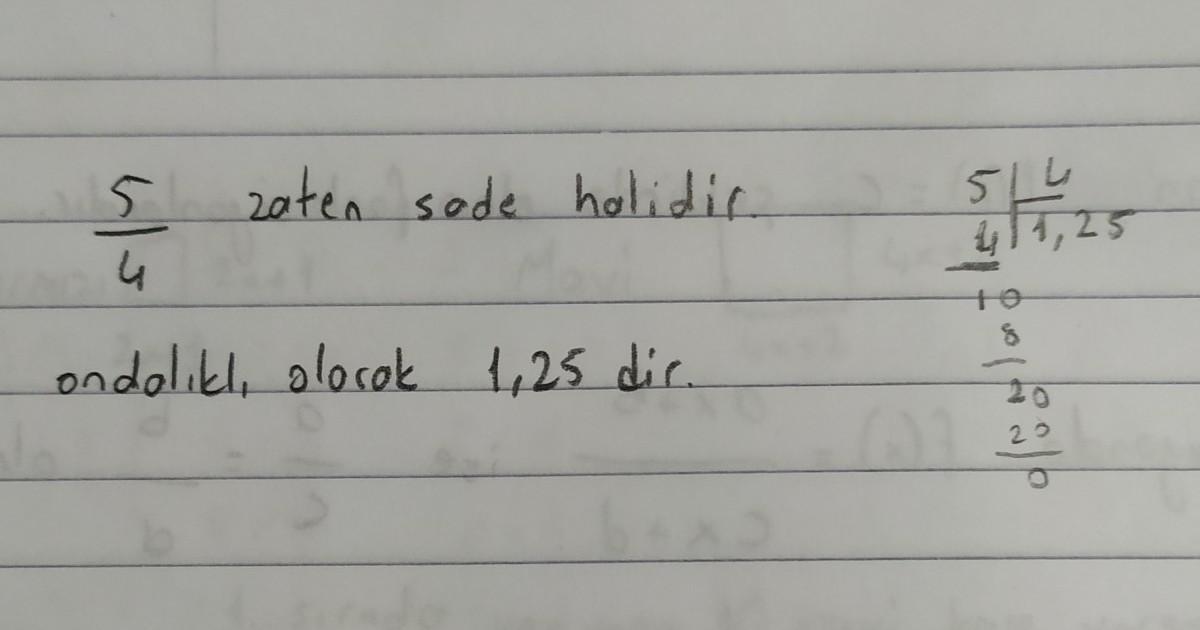 5/4 zaten sade halidir.
ondalıklı olarak 1,25 dir.
5 | 4
4 | 1,25
10
8
20
20
0